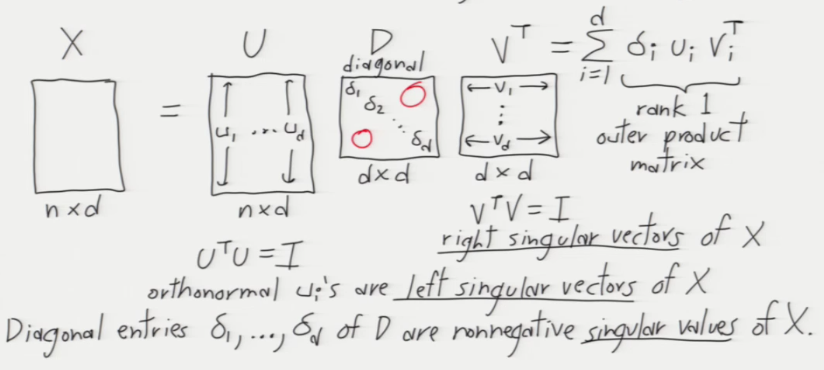 X = U D Vᵀ = ∑ᵢ₌₁ᵈ δᵢ uᵢ vᵢᵀ
diagonal
δ₁ δ₂ ⋱ δ_d
0 0
u₁ ... u_d
←v₁→
⋮
←v_d→
rank 1
outer product
matrix
n×d n×d d×d d×d
VᵀV = I
right singular vectors of X
UᵀU = I
orthonormal uᵢ's are left singular vectors of X
Diagonal entries δ₁, ..., δ_d of D are nonnegative singular values of X.